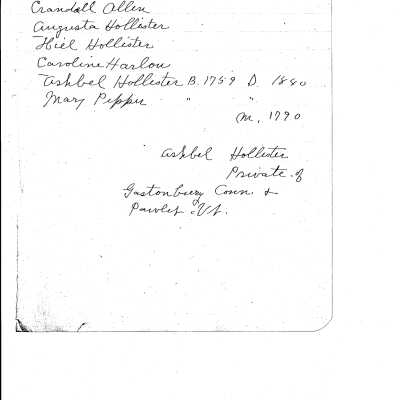 Crandall Allen
Augusta Hollister
Hiel Hollister
Caroline Harlow
Ashbel Hollister B. 1759 D. 1840
Mary Pepper " "
m. 1790
Ashbel Hollister
Private of
Gastonbury Conn. &
Pawlet Vt.